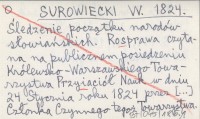 SUROWIECKI W. 1824.
Śledzenie początku narodów
słowiańskich. Rozprawa czyta-
na na publicznem posiedzeniu
Królewsko-Warszawskiego Towa-
rzystwa Przyjaciół Nauk w dniu
24 Stycznia roku 1824 przez [...]
Członka Czynnego tegoż Towarzystwa.